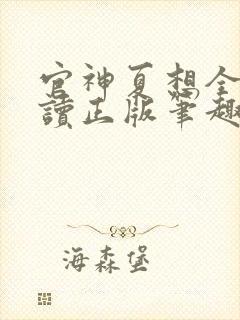 官神夏想全
讀正版筆趣
海森堡